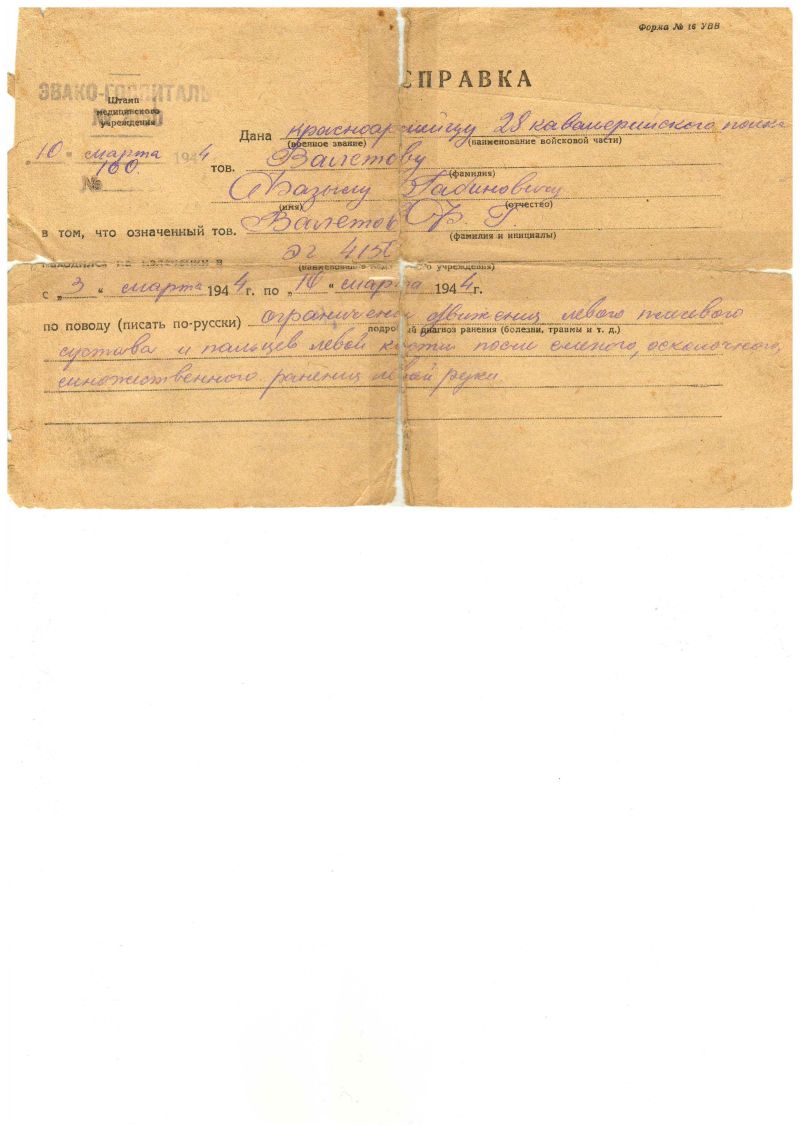 Форма № 16 УВВ
СПРАВКА
ЭВАКО-ГОСПИТАЛЬ
Штамп
медицинского
учреждения
Дана красноармейцу 28 кавалерийского полка
(военное звание) (наименование войсковой части)
„10 " марта 1944
тов. Валетову
(фамилия)
№ 160
Фазылу Габиновичу
(имя) (отчество)
в том, что означенный тов. Валетов Ф. Г.
(фамилия и инициалы)
находился на излечении в ЭГ
(наименование медицинского учреждения)
с „ 3 " марта 1944 г. по „ " марта 1944 г.
по поводу (писать по-русски) ограничения движения левого
подробный диагноз ранения (болезни, травмы и т. д.)
сустава и пальцев левой кисти после слепого, осколочного,
множественного ранения левой руки.